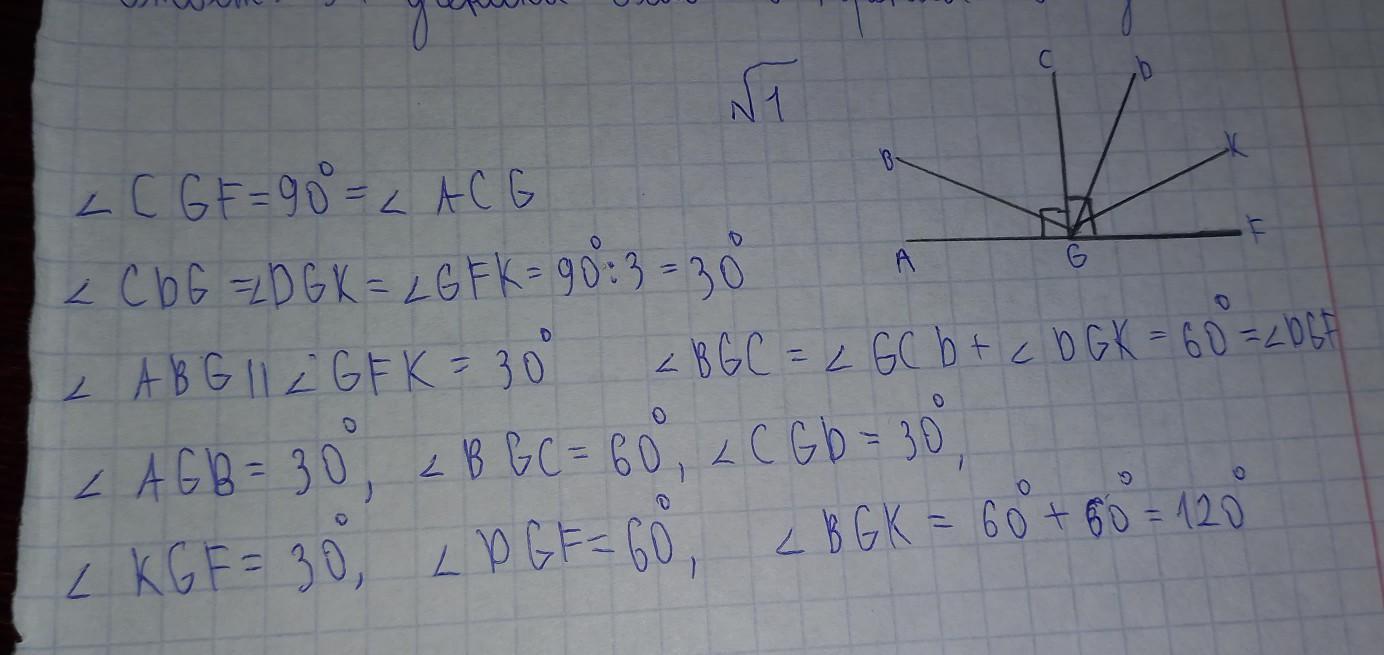 √1
C D
B K
A G F
∠ CGF = 90° = ∠ ACG
∠ CDG = ∠DGK = ∠GFK = 90° : 3 = 30°
∠ ABG || ∠ GFK = 30° ∠BGC = ∠ GCD + ∠ DGK = 60° = ∠DGF
∠ AGB = 30°, ∠ BGC = 60°, ∠ CGD = 30°,
∠ KGF = 30°, ∠ DGF = 60°, ∠ BGK = 60° + 60° = 120°